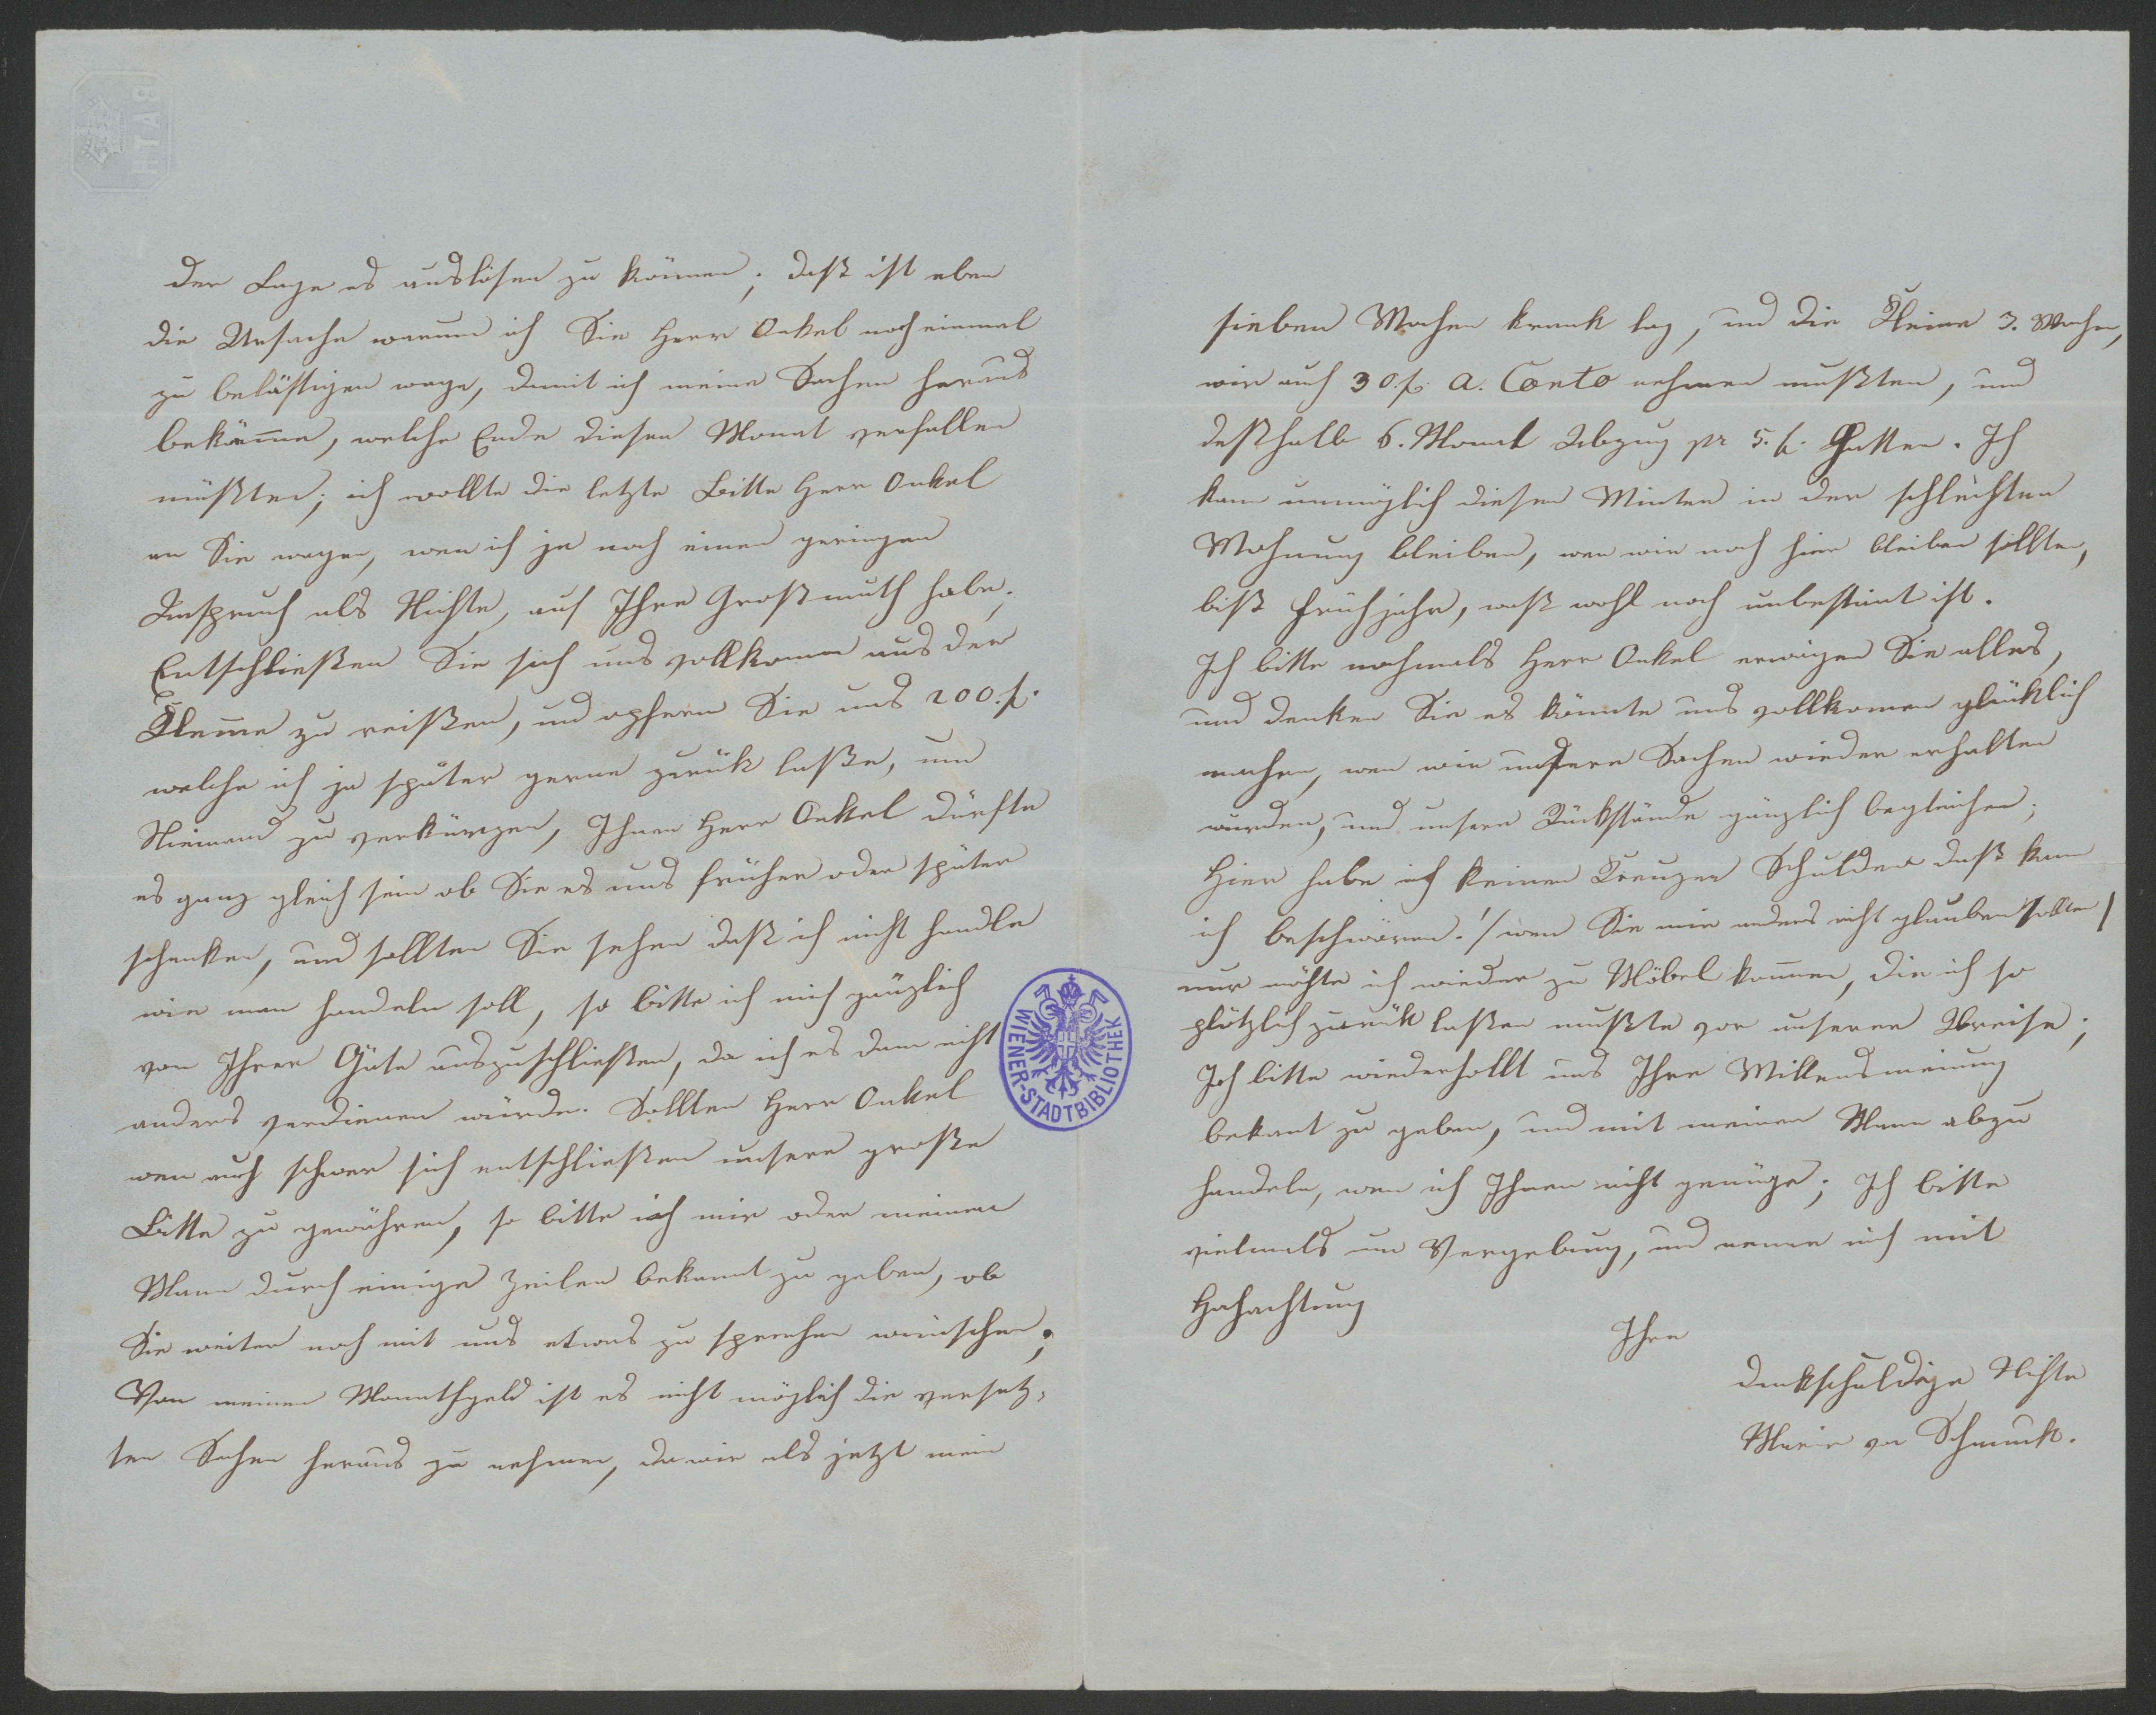 der Lage es auslösen zu können; daß ist eben
die Ursache warum ich Sie Herr Onkel noch einmal
zu belästigen wage, damit ich meine Sachen heraus
bekäme, welche Ende diesen Monat verfallen
müßten; ich wollte die letzte Bitte Herr Onkel
an Sie wagen, wen ich ja noch einen geringen
Anspruch als Nichte, auf Ihre Großmuth habe;
Entschließen Sie sich uns vollkomen aus der
Kleme zu reißen, und opfern Sie uns 200. f.
welche ich ja später gerne zurük laße, um
Niemand zu verkürzen, Ihnen Herr Onkel dürfte
es ganz gleich sein ob Sie es uns früher oder später
schenken, und sollten Sie sehen daß ich nicht handle
wie man handeln soll, so bitte ich mich gänzlich
von Ihrer Güte auszuschließen, da ich es dann nicht
anders verdienen würde. Sollten Herr Onkel
wen auch schwer sich entschließen unsere große
Bitte zu gewähren, so bitte ich mir oder meinen
Mann durch einige Zeilen bekannt zu geben, ob
Sie weiter noch mit uns etwas zu sprechen wünschen;
Von meinen Monathgeld ist es nicht möglich die versetz-
ten Sachen heraus zu nehmen, da wir als jetzt mein
sieben Wochen krank lag, und die Kleine 3. Wochen,
wir auch 30. f. a. Conto nehmen mußten, und
deßhalb 6. Monat Abzug pr 5. f. Hatten. Ich
kann unmöglich diesen Winter in der schlechten
Wohnung bleiben, wen wir noch hier bleiben sollten,
biß Frühjahr, waß wohl noch unbestimt ist.
Ich bitte nochmals Herr Onkel erwägen Sie alles,
und denken Sie es könnte uns vollkomen glüklich
machen, wen wir unsere Sachen wieder erhalten
würden, und unsere Rückstände gänzlich begleichen;
Hier habe ich keinen Kreuzer Schulden daß kann
ich beschwören. / wen Sie mir anders nicht glauben sollten /
nur möchte ich wieder zu Möbel kommen, die ich so
plötzlich zurük laßen mußte vor unserer Abreise;
Ich bitte wiederhollt uns Ihre Willensmeinung
bekant zu geben, und mit meinen Mann abzu
handeln, wen ich Ihnen nicht genüge; Ich bitte
vielmals um Vergebung, und nenne mich mit
Hochachtung
Ihre
dankschuldige Nichte
Marie von Schmuck.
WIENER-STADTBIBLIOTHEK
BATH